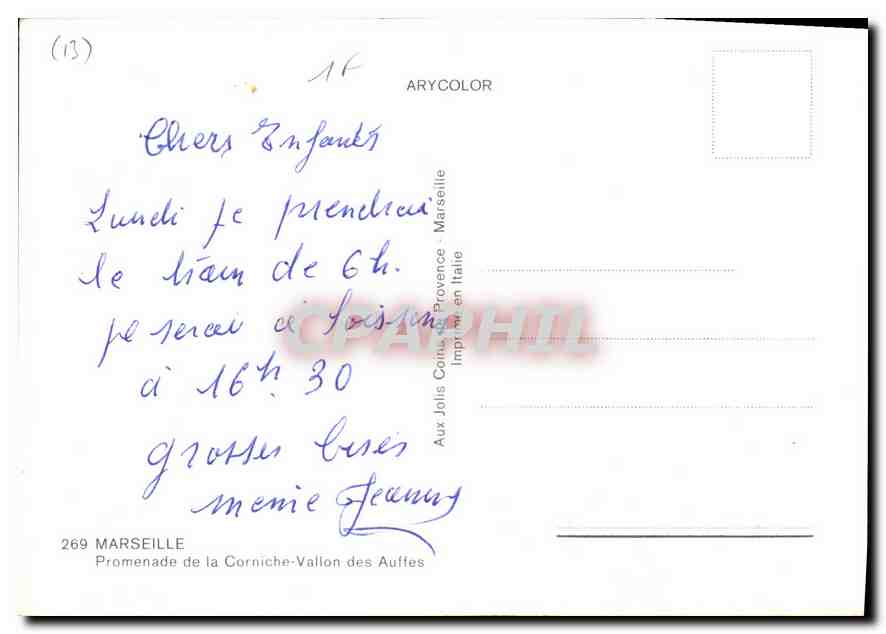 (13)
1F
ARYCOLOR
Chers Enfants
Lundi je prendrai
le train de 6h.
je serai à Soissons
à 16h. 30
grosses bises
memie Jeanne
Aux Jolis Coins de Provence - Marseille
Imprimé en Italie
CPAPHIL
269 MARSEILLE
Promenade de la Corniche-Vallon des Auffes